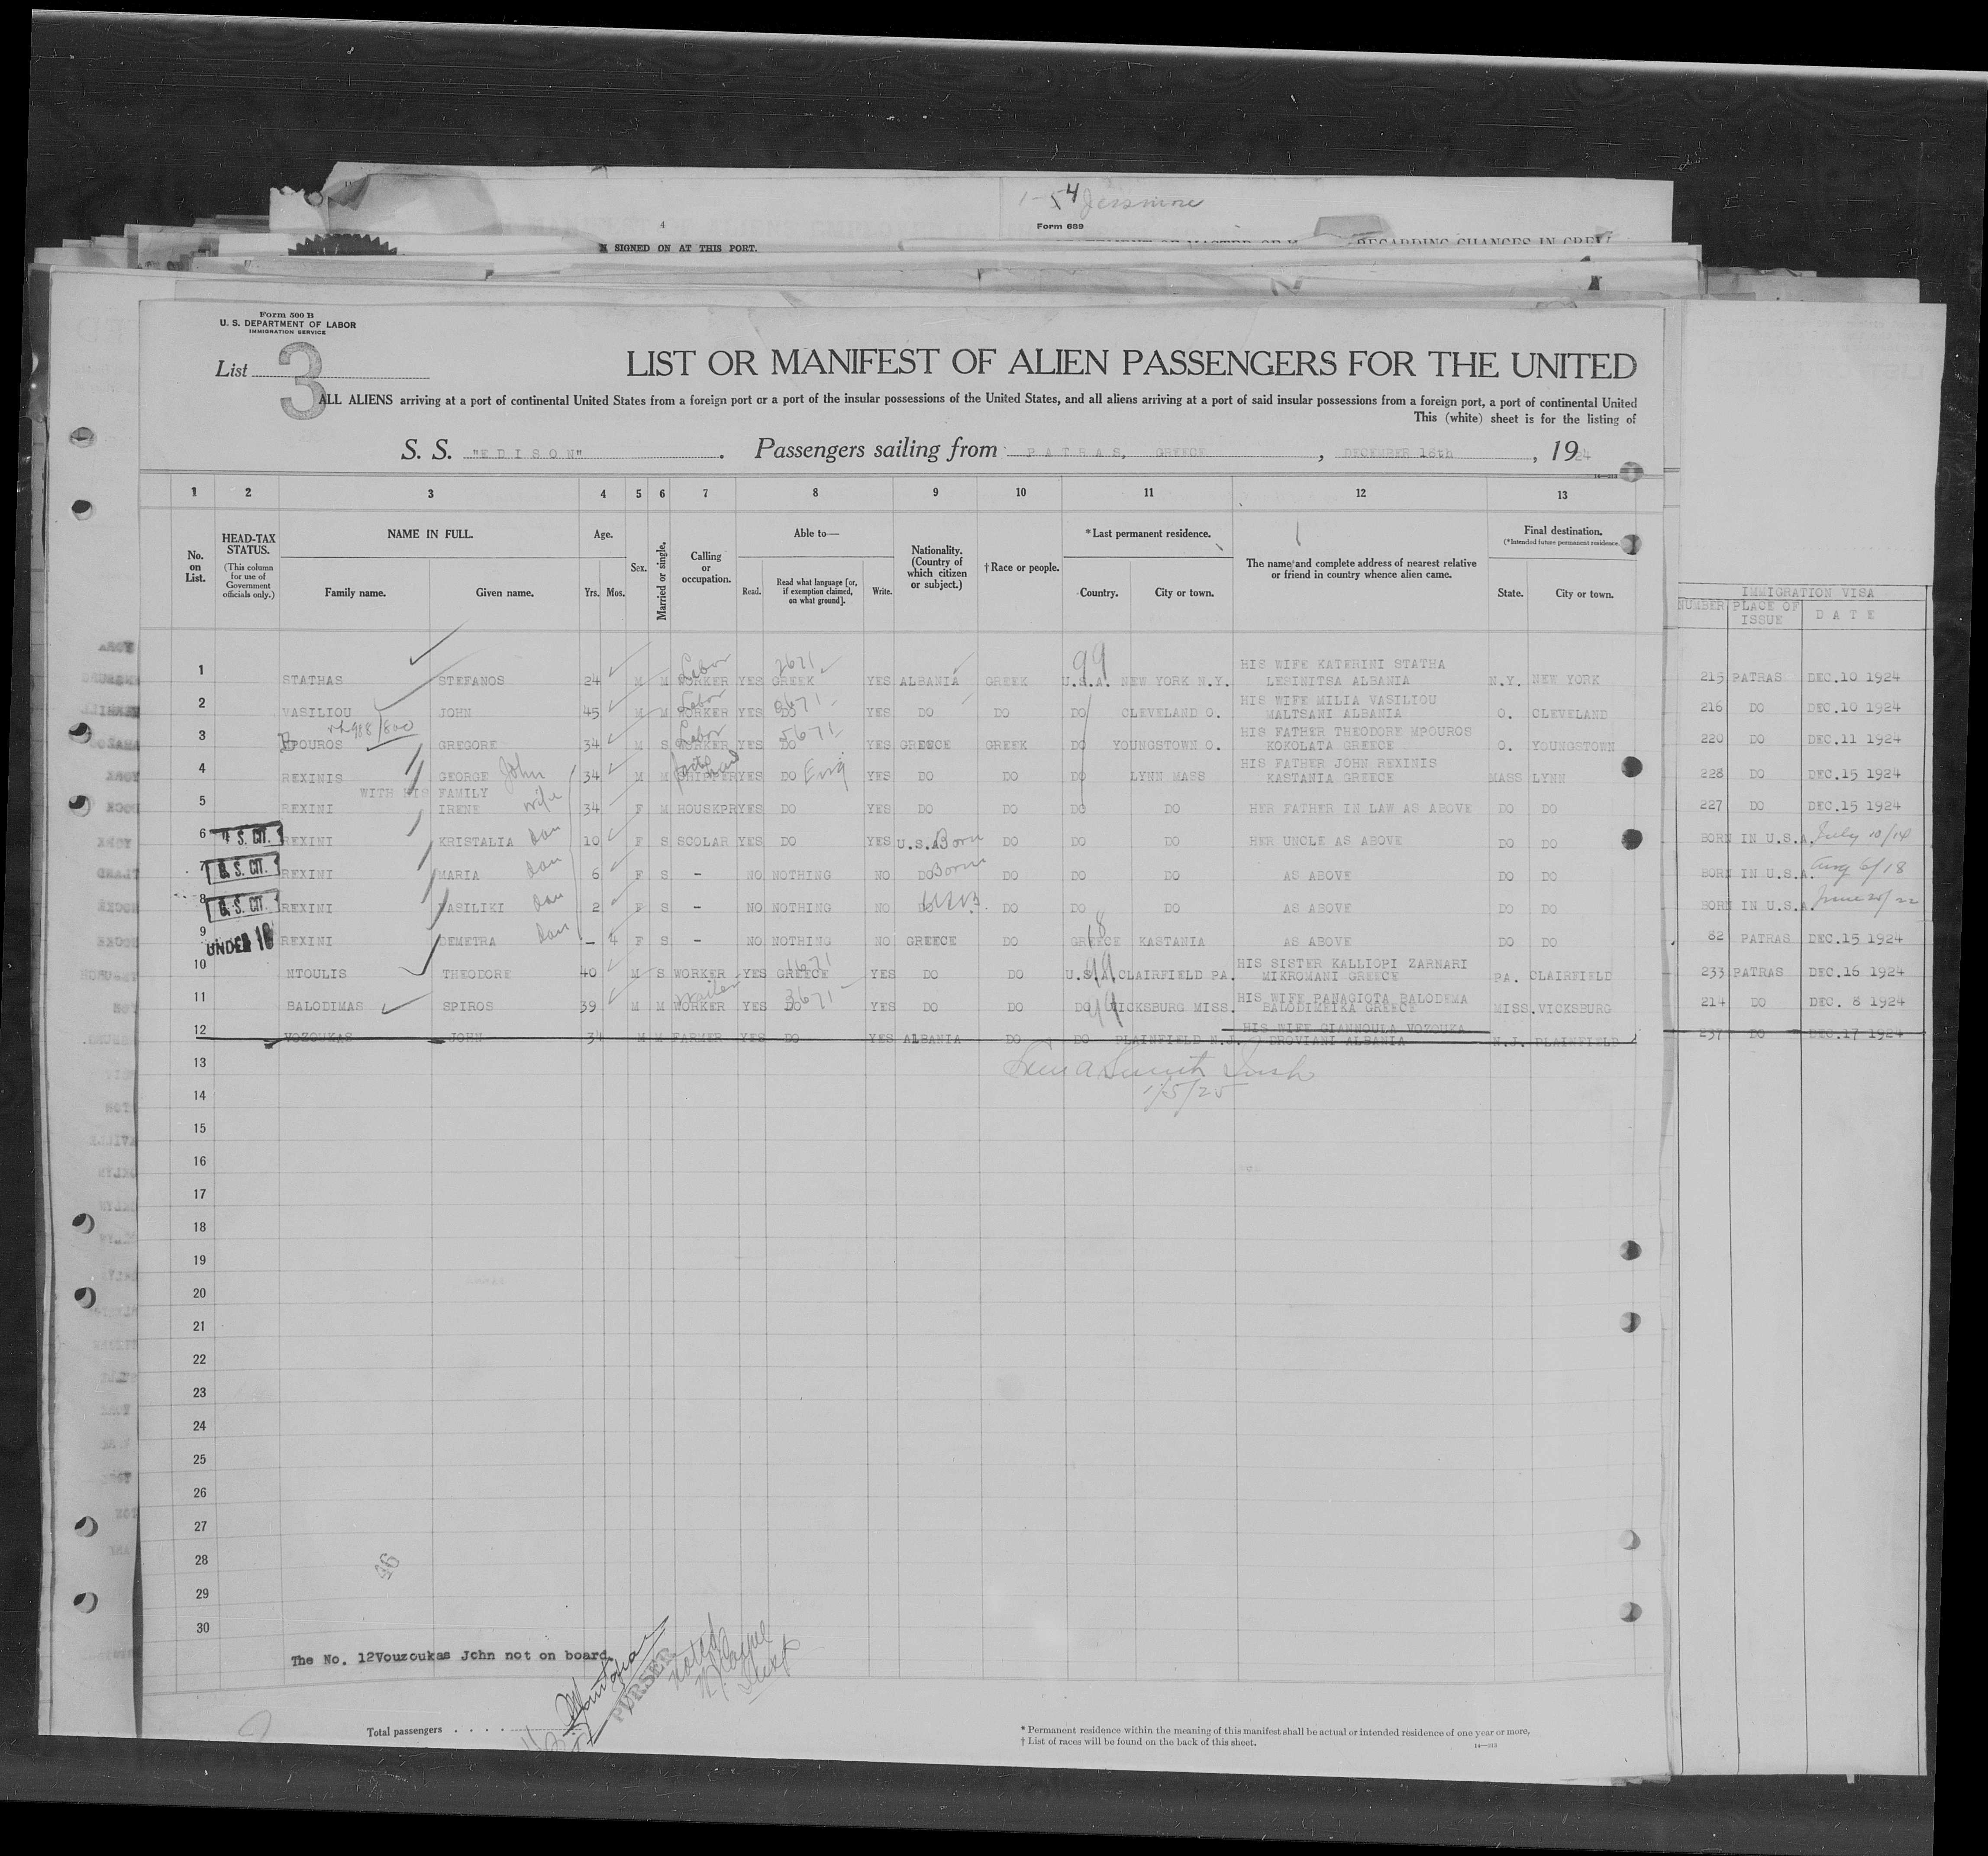 1-54 Jessmore
4
Form 689
SIGNED ON AT THIS PORT.
REGARDING CHANGES IN CREW
Form 500 B
U. S. DEPARTMENT OF LABOR
IMMIGRATION SERVICE
List 3
LIST OR MANIFEST OF ALIEN PASSENGERS FOR THE UNITED
ALL ALIENS arriving at a port of continental United States from a foreign port or a port of the insular possessions of the United States, and all aliens arriving at a port of said insular possessions from a foreign port, a port of continental United
This (white) sheet is for the listing of
S. S. "EDISON" . Passengers sailing from PATRAS, GREECE , DECEMBER 18th , 1924
1 2 3 4 5 6 7 8 9 10 11 12 13
No. on List. HEAD-TAX STATUS. (This column for use of Government officials only.) NAME IN FULL. Family name. Given name. Age. Yrs. Mos. Sex. Married or single. Calling or occupation. Able to— Read. Read what language [or, if exemption claimed, on what ground]. Write. Nationality. (Country of which citizen or subject.) †Race or people. *Last permanent residence. Country. City or town. The name and complete address of nearest relative or friend in country whence alien came. Final destination. (*Intended future permanent residence.) State. City or town.
IMMIGRATION VISA
NUMBER PLACE OF ISSUE DATE
Labor 2671 99 HIS WIFE KATERINI STATHA
1 STATHAS STEFANOS 24 M M WORKER YES GREEK YES ALBANIA GREEK U.S.A. NEW YORK N.Y. LESINITSA ALBANIA N.Y. NEW YORK 215 PATRAS DEC.10 1924
Labor 8671 HIS WIFE MILIA VASILIOU
2 VASILIOU JOHN 45 M M WORKER YES DO YES DO DO DO CLEVELAND O. MALTSANI ALBANIA O. CLEVELAND 216 DO DEC.10 1924
Labor 5671 HIS FATHER THEODORE MPOUROS
3 BPOUROS GREGORE 34 M S WORKER YES DO YES GREECE GREEK DO YOUNGSTOWN O. KOKOLATA GREECE O. YOUNGSTOWN 220 DO DEC.11 1924
HIS FATHER JOHN REXINIS
4 REXINIS GEORGE John 34 M M SHIPPER YES DO Eng YES DO DO DO LYNN MASS KASTANIA GREECE MASS LYNN 228 DO DEC.15 1924
WITH HIS FAMILY
5 REXINI IRENE wife 34 F M HOUSKPR YES DO YES DO DO DO DO HER FATHER IN LAW AS ABOVE DO DO 227 DO DEC.15 1924
6 U. S. CIT. REXINI KRISTALIA dau 10 F S SCOLAR YES DO YES U.S.A Born DO DO DO HER UNCLE AS ABOVE DO DO BORN IN U.S.A. July 10/14
7 U. S. CIT. REXINI MARIA dau 6 F S - NO NOTHING NO DO Born DO DO DO AS ABOVE DO DO BORN IN U.S.A. Aug 6/18
8 U. S. CIT. REXINI VASILIKI dau 2 F S - NO NOTHING NO DO USB. DO DO DO AS ABOVE DO DO BORN IN U.S.A. June 20/22
9 UNDER 16 REXINI DEMETRA dau - 4 F S - NO NOTHING NO GREECE DO GREECE KASTANIA AS ABOVE DO DO 82 PATRAS DEC.15 1924
1671 HIS SISTER KALLIOPI ZARNARI
10 MTOULIS THEODORE 40 M S WORKER YES GREECE YES DO DO U.S.A CLAIRFIELD PA. MIKROMANI GREECE PA. CLAIRFIELD 233 PATRAS DEC.16 1924
Waiter 3671 99 HIS WIFE PANAGIOTA BALODEMA
11 BALODIMAS SPIROS 39 M M WORKER YES DO YES DO DO DO VICKSBURG MISS. BALODIMEIKA GREECE MISS. VICKSBURG 214 DO DEC. 8 1924
HIS WIFE GIANNOULA VOZOUKA
12 VOZOUKAS JOHN 34 M M FARMER YES DO YES ALBANIA DO DO PLAINFIELD N.J. DROVIANI ALBANIA N.J. PLAINFIELD 237 DO DEC.17 1924
13
1/5/25
14
15
16
17
18
19
20
21
22
23
24
25
26
27
28
29
30
46
The No. 12Vouzoukas John not on board.
PURSER
Noted
Total passengers . . . .
* Permanent residence within the meaning of this manifest shall be actual or intended residence of one year or more.
† List of races will be found on the back of this sheet.
14—213